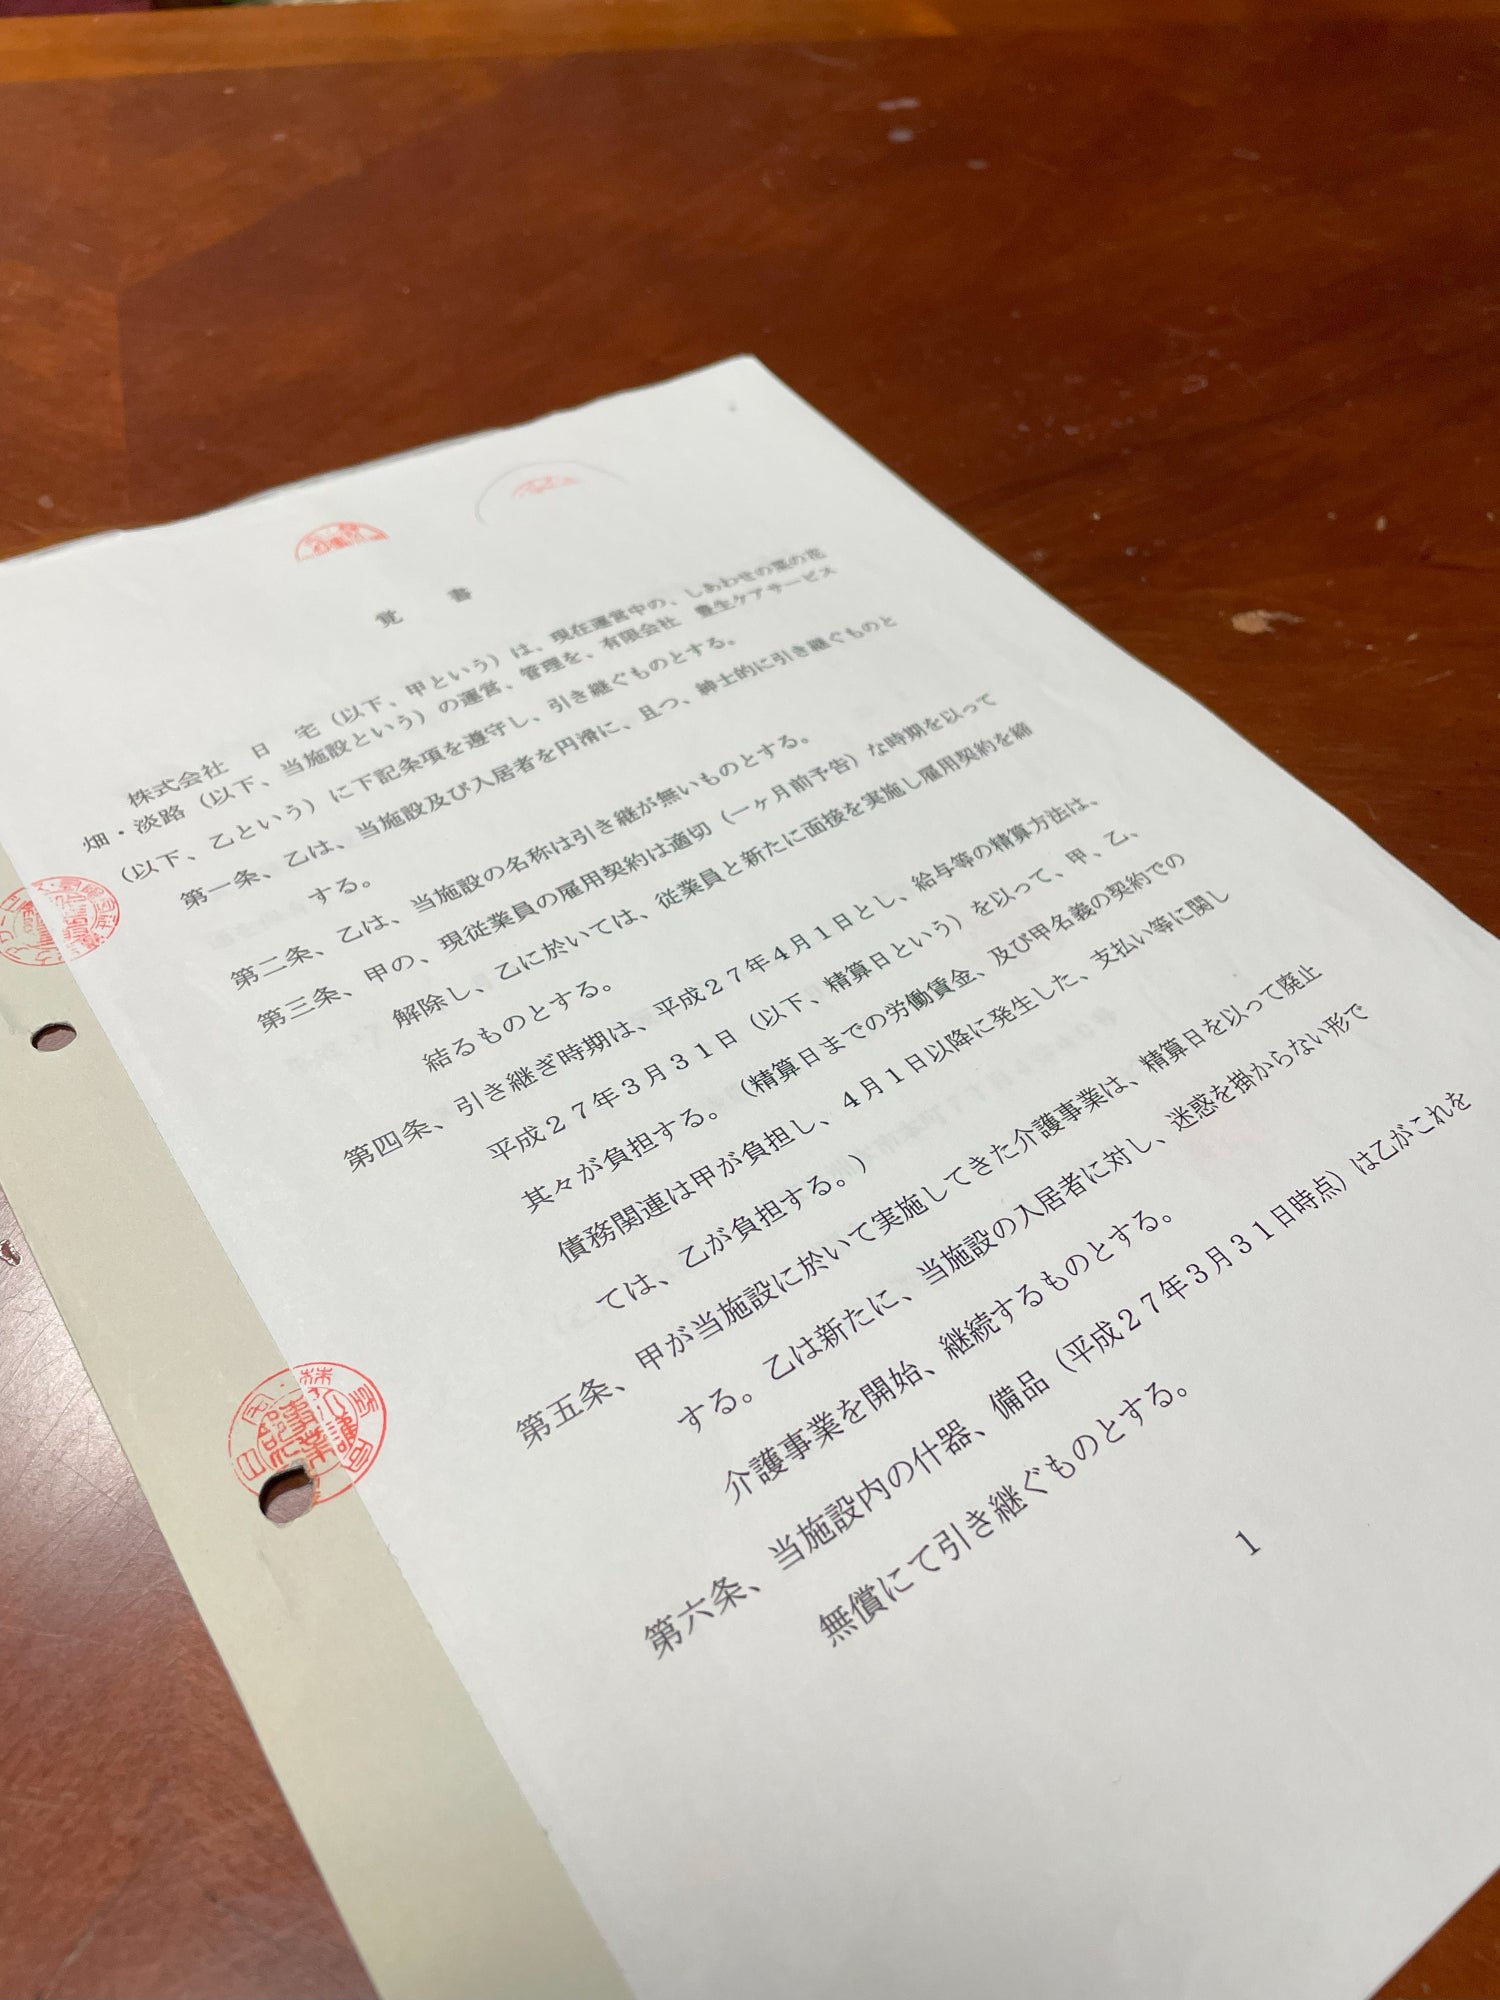 覚　書
株式会社　日　宅（以下、甲という）は、現在運営中の、しあわせの菜の花
畑・淡路（以下、当施設という）の運営、管理を、有限会社　豊生ケアサービス
（以下、乙という）に下記条項を遵守し、引き継ぐものとする。
第一条、乙は、当施設及び入居者を円滑に、且つ、紳士的に引き継ぐものと
する。
第二条、乙は、当施設の名称は引き継が無いものとする。
第三条、甲の、現従業員の雇用契約は適切（一ヶ月前予告）な時期を以って
解除し、乙に於いては、従業員と新たに面接を実施し雇用契約を締
結るものとする。
第四条、引き継ぎ時期は、平成２７年４月１日とし、給与等の精算方法は、
平成２７年３月３１日（以下、精算日という）を以って、甲、乙、
其々が負担する。（精算日までの労働賃金、及び甲名義の契約での
債務関連は甲が負担し、４月１日以降に発生した、支払い等に関し
ては、乙が負担する。）
第五条、甲が当施設に於いて実施してきた介護事業は、精算日を以って廃止
する。乙は新たに、当施設の入居者に対し、迷惑を掛からない形で
介護事業を開始、継続するものとする。
第六条、当施設内の什器、備品（平成２７年３月３１日時点）は乙がこれを
無償にて引き継ぐものとする。
1